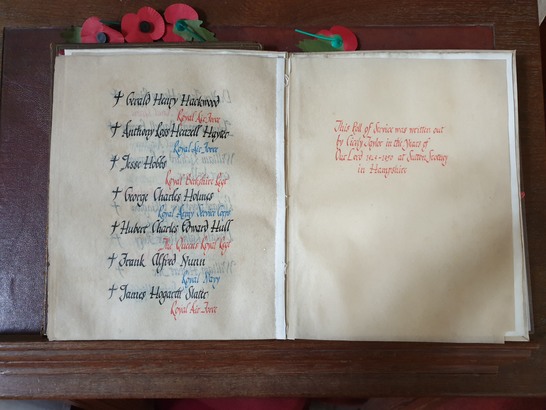 † Gerald Henry Hackwood
Royal Air Force
† Anthony Ross Hewell Hayter
Royal Air Force
† Jesse Hobbs
Royal Berkshire Regt
† George Charles Holmes
Royal Army Service Corps
† Hubert Charles Edward Hull
The Queens Royal Regt
† Frank Alfred Nunn
Royal Navy
† James Hogarth Slater
Royal Air Force
This Roll of Service was written out
by Taylor in the Years of
Our Lord at Sutton Scotney
in Hampshire